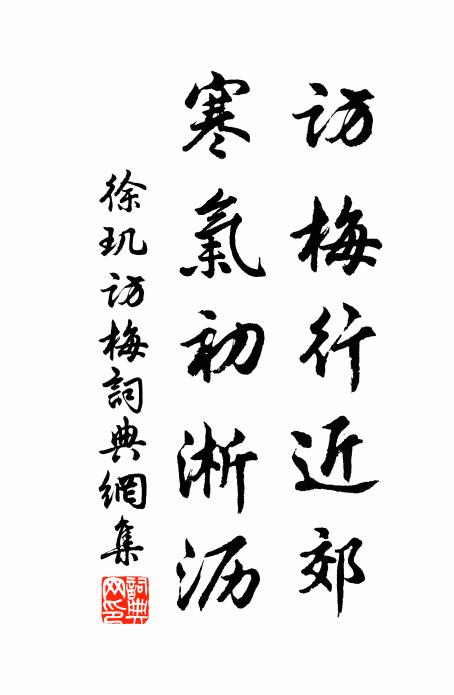 訪梅行近郊
寒氣初淅沥
徐玑訪梅詞典網集
詞典網印